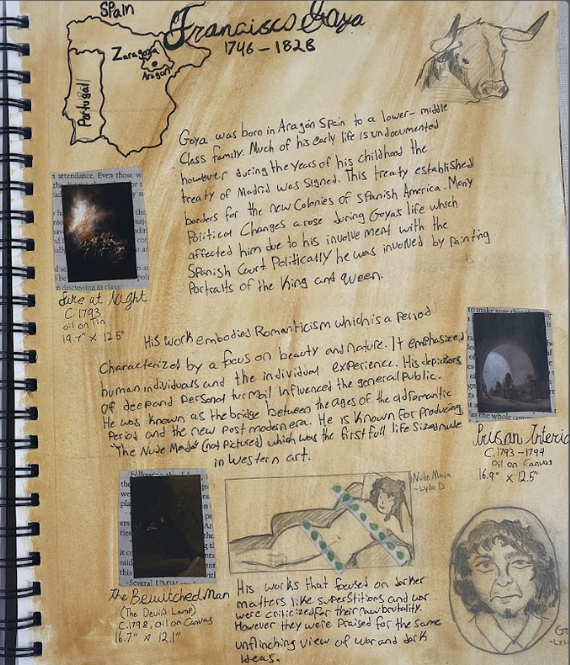 Spain
Francisco Goya
1746 - 1828
Zaragoza
Aragon
Portugal
Goya was born in Aragon Spain to a lower-middle
Class family. Much of his early life is undocumented
however during the years of his childhood the
treaty of Madrid was signed. This treaty established
borders for the new Colonies of Spanish America. Many
Political Changes arose during Goyas life which
affected him due to his involvement with the
Spanish Court Politically he was involved by painting
Portraits of the King and Queen.
attendance. Even those
Fire at Night
C. 1793
oil on Tin
19.7" x 12.5"
His work embodied Romanticism which is a Period
Characterized by a focus on beauty and nature. It emphasized
human individuals and the individual experience. His depictions
of deep and personal turmoil influenced the general Public.
He was known as the bridge between the ages of the old romantic
Period and the new post modern era. He is known for Producing
"The Nude Maja" (not Pictured) which was the first full life sized nude
in Western art.
the whole
Prison Interio
C. 1793 - 1794
Oil on Canvas
16.9" x 12.5"
Several
The Bewitched Man
(The Devil's Lamp)
C. 1798, oil on Canvas
16.7" x 12.1"
Nude Maja
- Lyle D
His works that focused on darker
matters like superstitions and war
were criticized for their raw brutality.
However they were praised for the same
unflinching view of war and dark
Ideas.